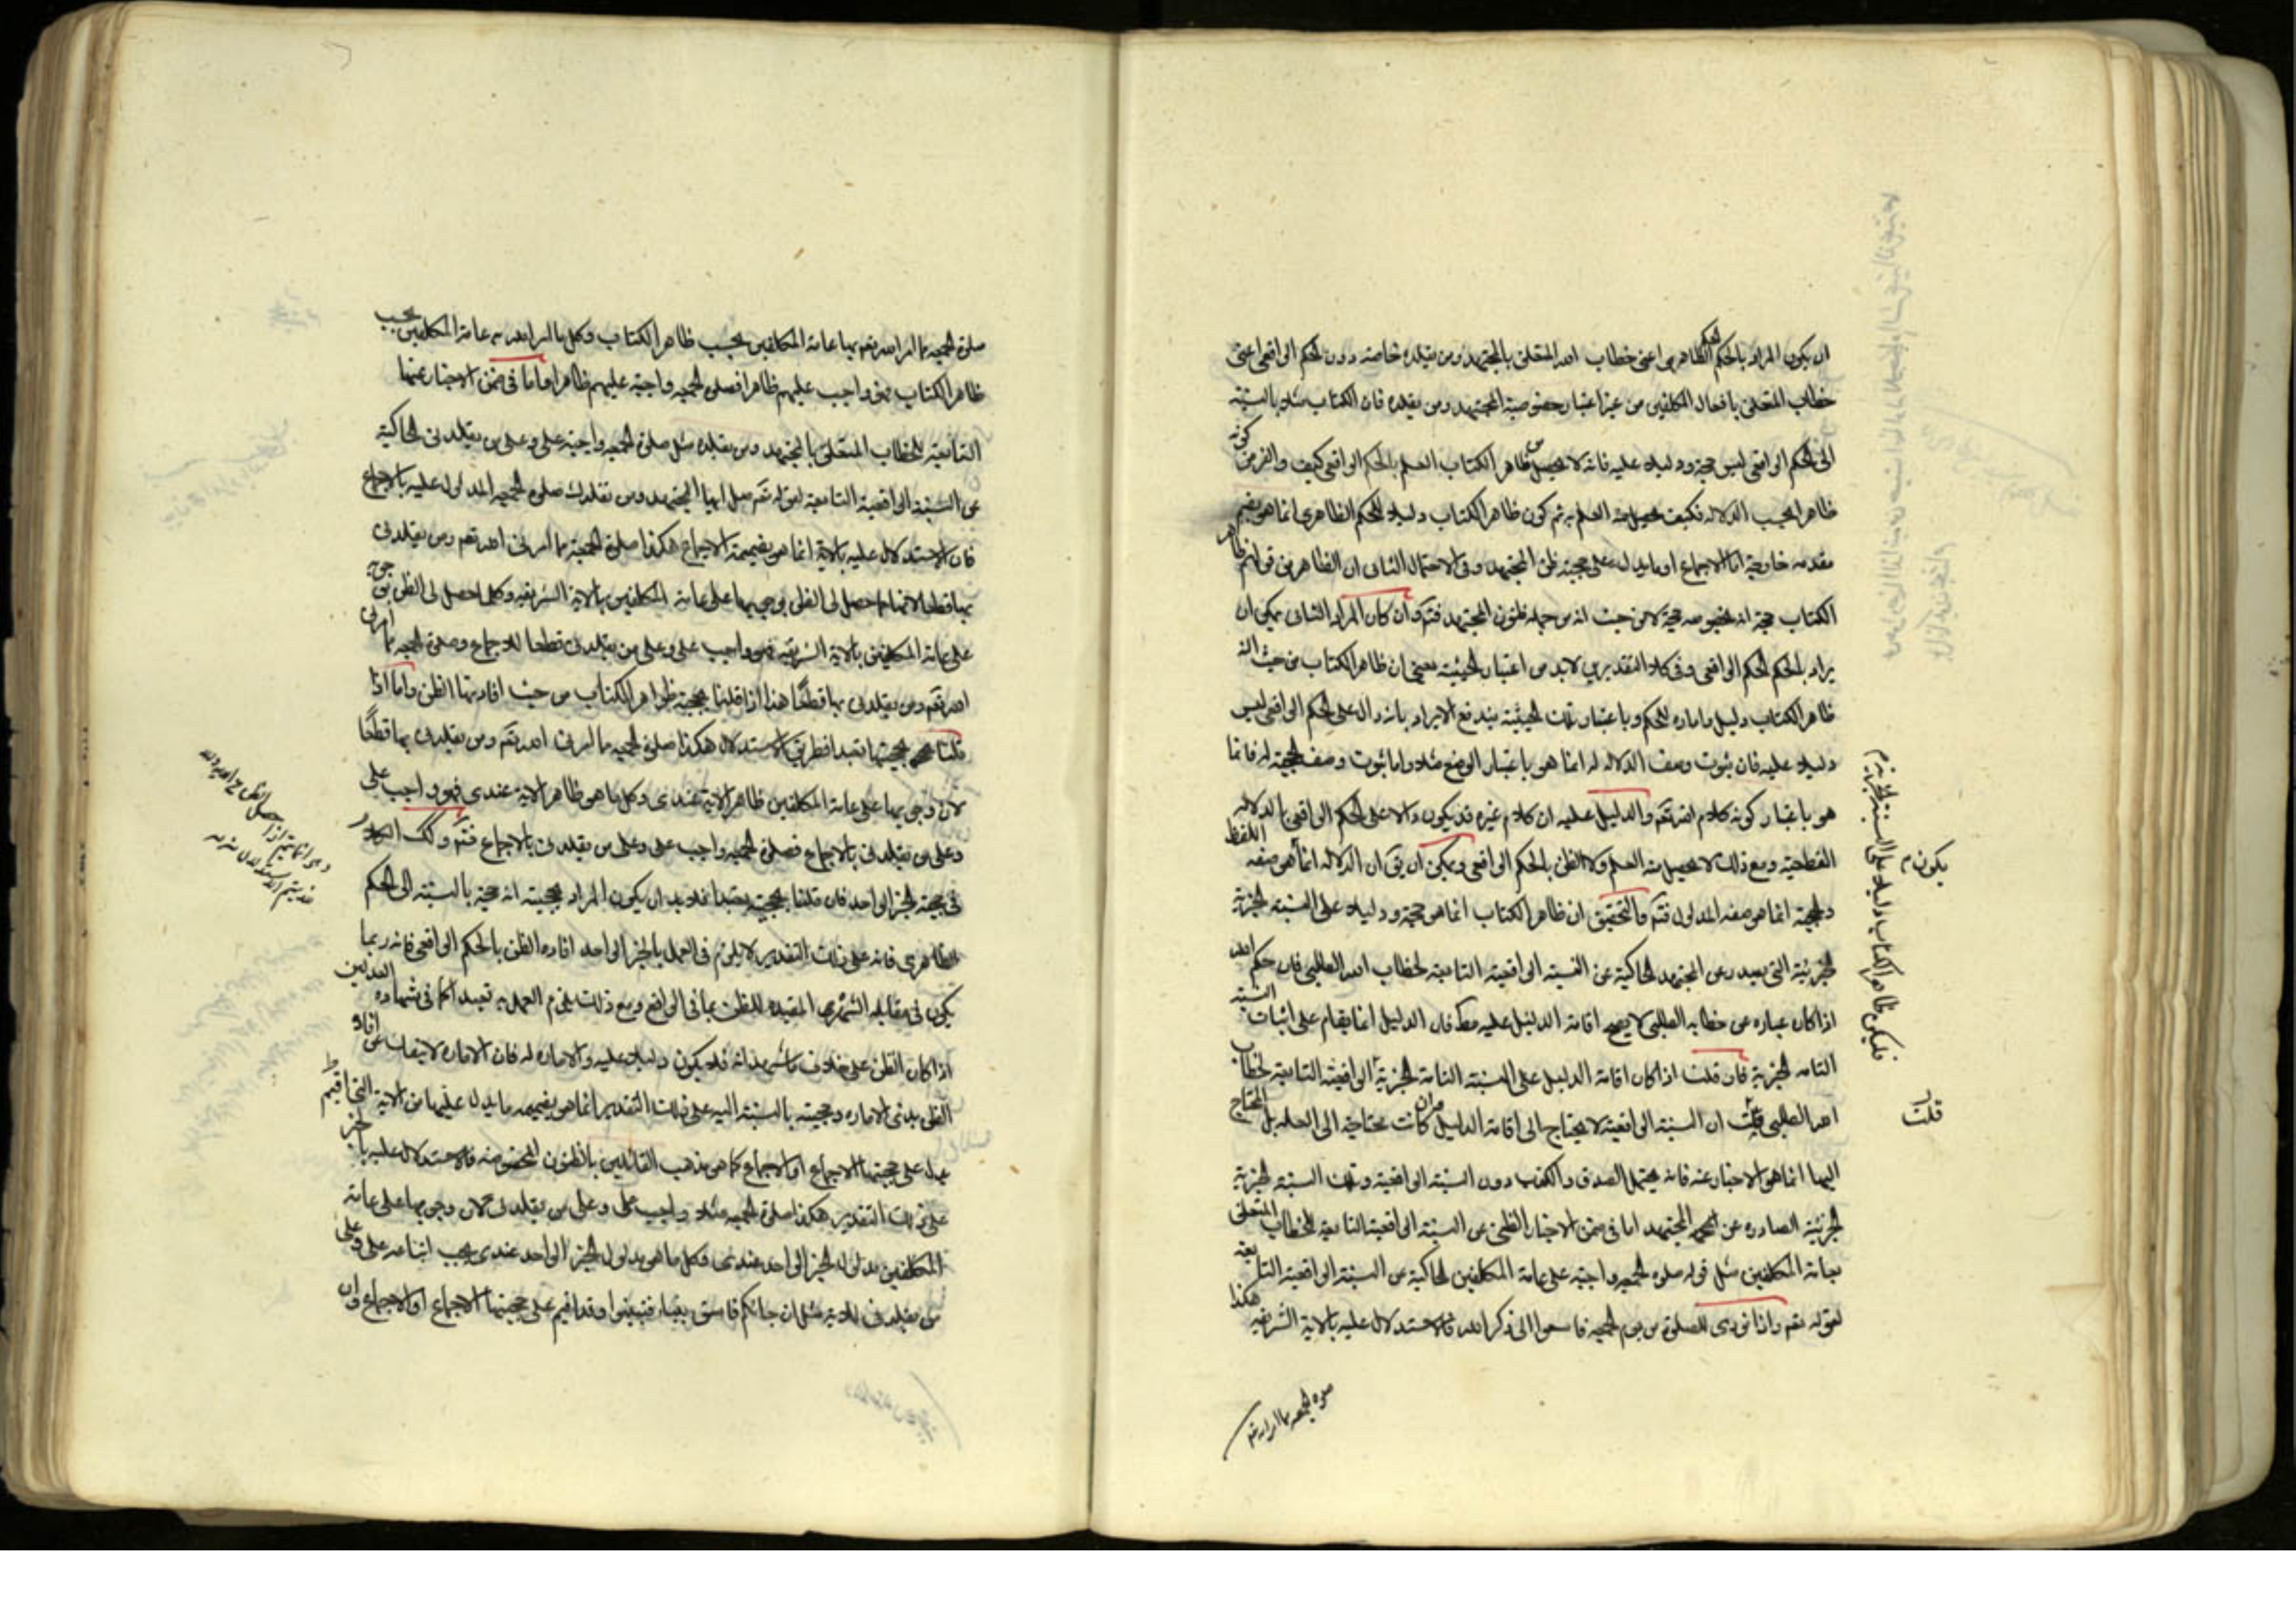 ان يكون المراد بالحكم الحكم الظاهرى اعنى خطاب الله المتعلق بالمجتهد ومن يقلده خاصة دون الحكم الواقعى اعنى
خطاب المتعلق بافعال المكلفين من غير اعتبار خصوصية المجتهد ومن يقلده فان الكتاب مثلا بالنسبة
الى الحكم الواقعى ليس حجة ودليلا عليه فانه لا يحصل من ظاهر الكتاب العلم بالحكم الواقعى كيف والفرض كونه
ظاهرا بحسب الدلالة فكيف يحصل منه العلم به ثم كون ظاهر الكتاب دليلا للحكم الظاهرى انما هو بضم
مقدمة خارجية اما الاجماع او ما يدل على حجية ظن المجتهد وفى الاحتمال الثانى ان الظاهر من قولهم ظاهر
الكتاب حجة انه بخصوصه حجة لا من حيث انه من جملة ظنون المجتهد فتم وان كان المراد الثانى يمكن ان
يراد بالحكم الحكم الواقعى وفى كلا التقديرين لا بد من اعتبار الحيثية بمعنى ان ظاهر الكتاب من حيث انه
ظاهر الكتاب دليل وامارة للحكم وباعتبار تلك الحيثية يندفع الايراد بانه دال على الحكم الواقعى ليس
دليلا عليه فان ثبوت وصف الدلالة له انما هو باعتبار الوضع مثلا واما ثبوت وصف الحجية له فانما
هو باعتبار كونه كلام الله تعم والدليل عليه ان كلام غيره قد يكون دالا على الحكم الواقعى بالدلالة
القطعية ومع ذلك لا يحصل منه العلم ولا الظن بالحكم الواقعى ويمكن ان يق ان الدلالة انما هى صفة اللفظ
والحجية انما هو صفة المدلول فتم والتحقيق ان ظاهر الكتاب انما هو حجة ودليلا على النسبة الخبرية
الجزئية التى يصدر عن المجتهد الحاكية عن النسبة الواقعية التابعة لخطاب الله الطلبى فان حكم الله
اذا كان عبارة عن خطابه الطلبى لا يصح اقامة الدليل عليه مط فان الدليل انما يقام على اثبات النسبة
التامه الخبرية فان قلت اذا كان اقامة الدليل على النسبة التامة الخبرية الواقعية التابعة لخطاب
الله الطلبى قلت ان النسبة الواقعية لا يحتاج الى اقامة الدليل وان كانت محتاجة الى العلة بل المحتاج
اليها انما هو الاخبار عنه فانه يحتمل الصدق والكذب دون النسبة الواقعية وتلك النسبة الخبرية
الجزئية الصادرة عن المجتهد اما فى ضمن الاخبار الظنى عن النسبة الواقعية التابعة للخطاب المتعلق
بعامة المكلفين مثل قوله صلوة الجمعة واجبة على عامة المكلفين الحاكية عن النسبة الواقعية التابعة
لقوله تعم واذا نودى للصلوة من يوم الجمعة فاسعوا الى ذكر الله فالاستدلال عليه بالاية الشريفة هكذا
يكون م
فليكن ظاهر الكتاب دليلا على النسبة
قلت
صلوة الجمعة مما اراد تعم
صلوة الجمعة مما اراد الله تعم بها عامة المكلفين بحسب ظاهر الكتاب وكل ما اراد الله به عامة المكلفين بحسب
ظاهر الكتاب فهو واجب عليهم ظاهرا فصلوة الجمعة واجبة عليهم ظاهرا واما فى ضمن الاخبار عنها
التابعية للخطاب المتعلق بالمجتهد ومن يقلده مثل صلوة الجمعة واجبة على وعلى من يقلدنى الحاكية
عن النسبة الواقعية التابعية لقوله تعم صل ايها المجتهد ومن يقلدك صلوة الجمعة المدلول عليه بالاجماع
فان الاستدلال عليه بالاية انما هو بضميمة الاجماع هكذا صلوة الجمعة مما امرنى الله تعم ومن يقلدنى
بها قطعا لانها مما حصل لى الظن بوجوبها على عامة المكلفين بالاية الشريفة وكل ما حصل لى الظن بوجوبه
على عامة المكلفين بالاية الشريفة فهو واجب على وعلى من يقلدنى قطعا للاجماع وصلوة الجمعة مما امرنى
الله تعم ومن يقلدنى بها قطعا هذا اذا قلنا بحجية ظواهر الكتاب من حيث افادتها الظن واما اذا
قلنا بحجيتها تعبدا فطريق الاستدلال هكذا صلوة الجمعة مما امرنى الله تعم ومن يقلدنى بها قطعا
لان وجوبها على عامة المكلفين ظاهر الاية عندى وكل ما هو ظاهر الاية عندى فهو واجب على
وعلى من يقلدنى بالاجماع فصلوة الجمعة واجب على وعلى من يقلدنى بالاجماع فتم وكك الكلام
فى حجية الخبر الواحد فان قلنا بحجيته تعبدا فلا بد ان يكون المراد بحجيته انه حجة بالنسبة الى الحكم
الظاهرى فانه على ذلك التقدير لا يلزم فى العمل بالخبر الواحد افادة الظن بالحكم الواقعى فانه ربما
يكون فى مقابله الشهرة المفيدة للظن بما فى الواقع ومع ذلك يلزم العمل به تعبدا كما فى شهادة العدلين
اذا كان الظن على خلاف ما شهدا به فلا يكون دليلا عليه ولا امارة له فان الامارة لا ينفك عن افادة
الظن بذى الامارة وحجيته بالنسبة اليه على ذلك التقدير انما هو بضميمة ما يدل عليها من الاية التى اقيم
على حجيتها الاجماع او الاجماع كما هو مذهب القائلين بالظنون المخصوصة فالاستدلال عليه بالخبر
على ذلك التقدير هكذا صلوة الجمعة مثلا واجب على وعلى من يقلدنى لان وجوبها على عامة
المكلفين مدلول الخبر الواحد عندى وكل ما هو مدلول الخبر الواحد عندى يجب اتباعه على وعلى
من يقلدنى للاية مثل ان جاءكم فاسق بنباء فتبينوا وقد اقيم على حجيتها الاجماع او الاجماع وان